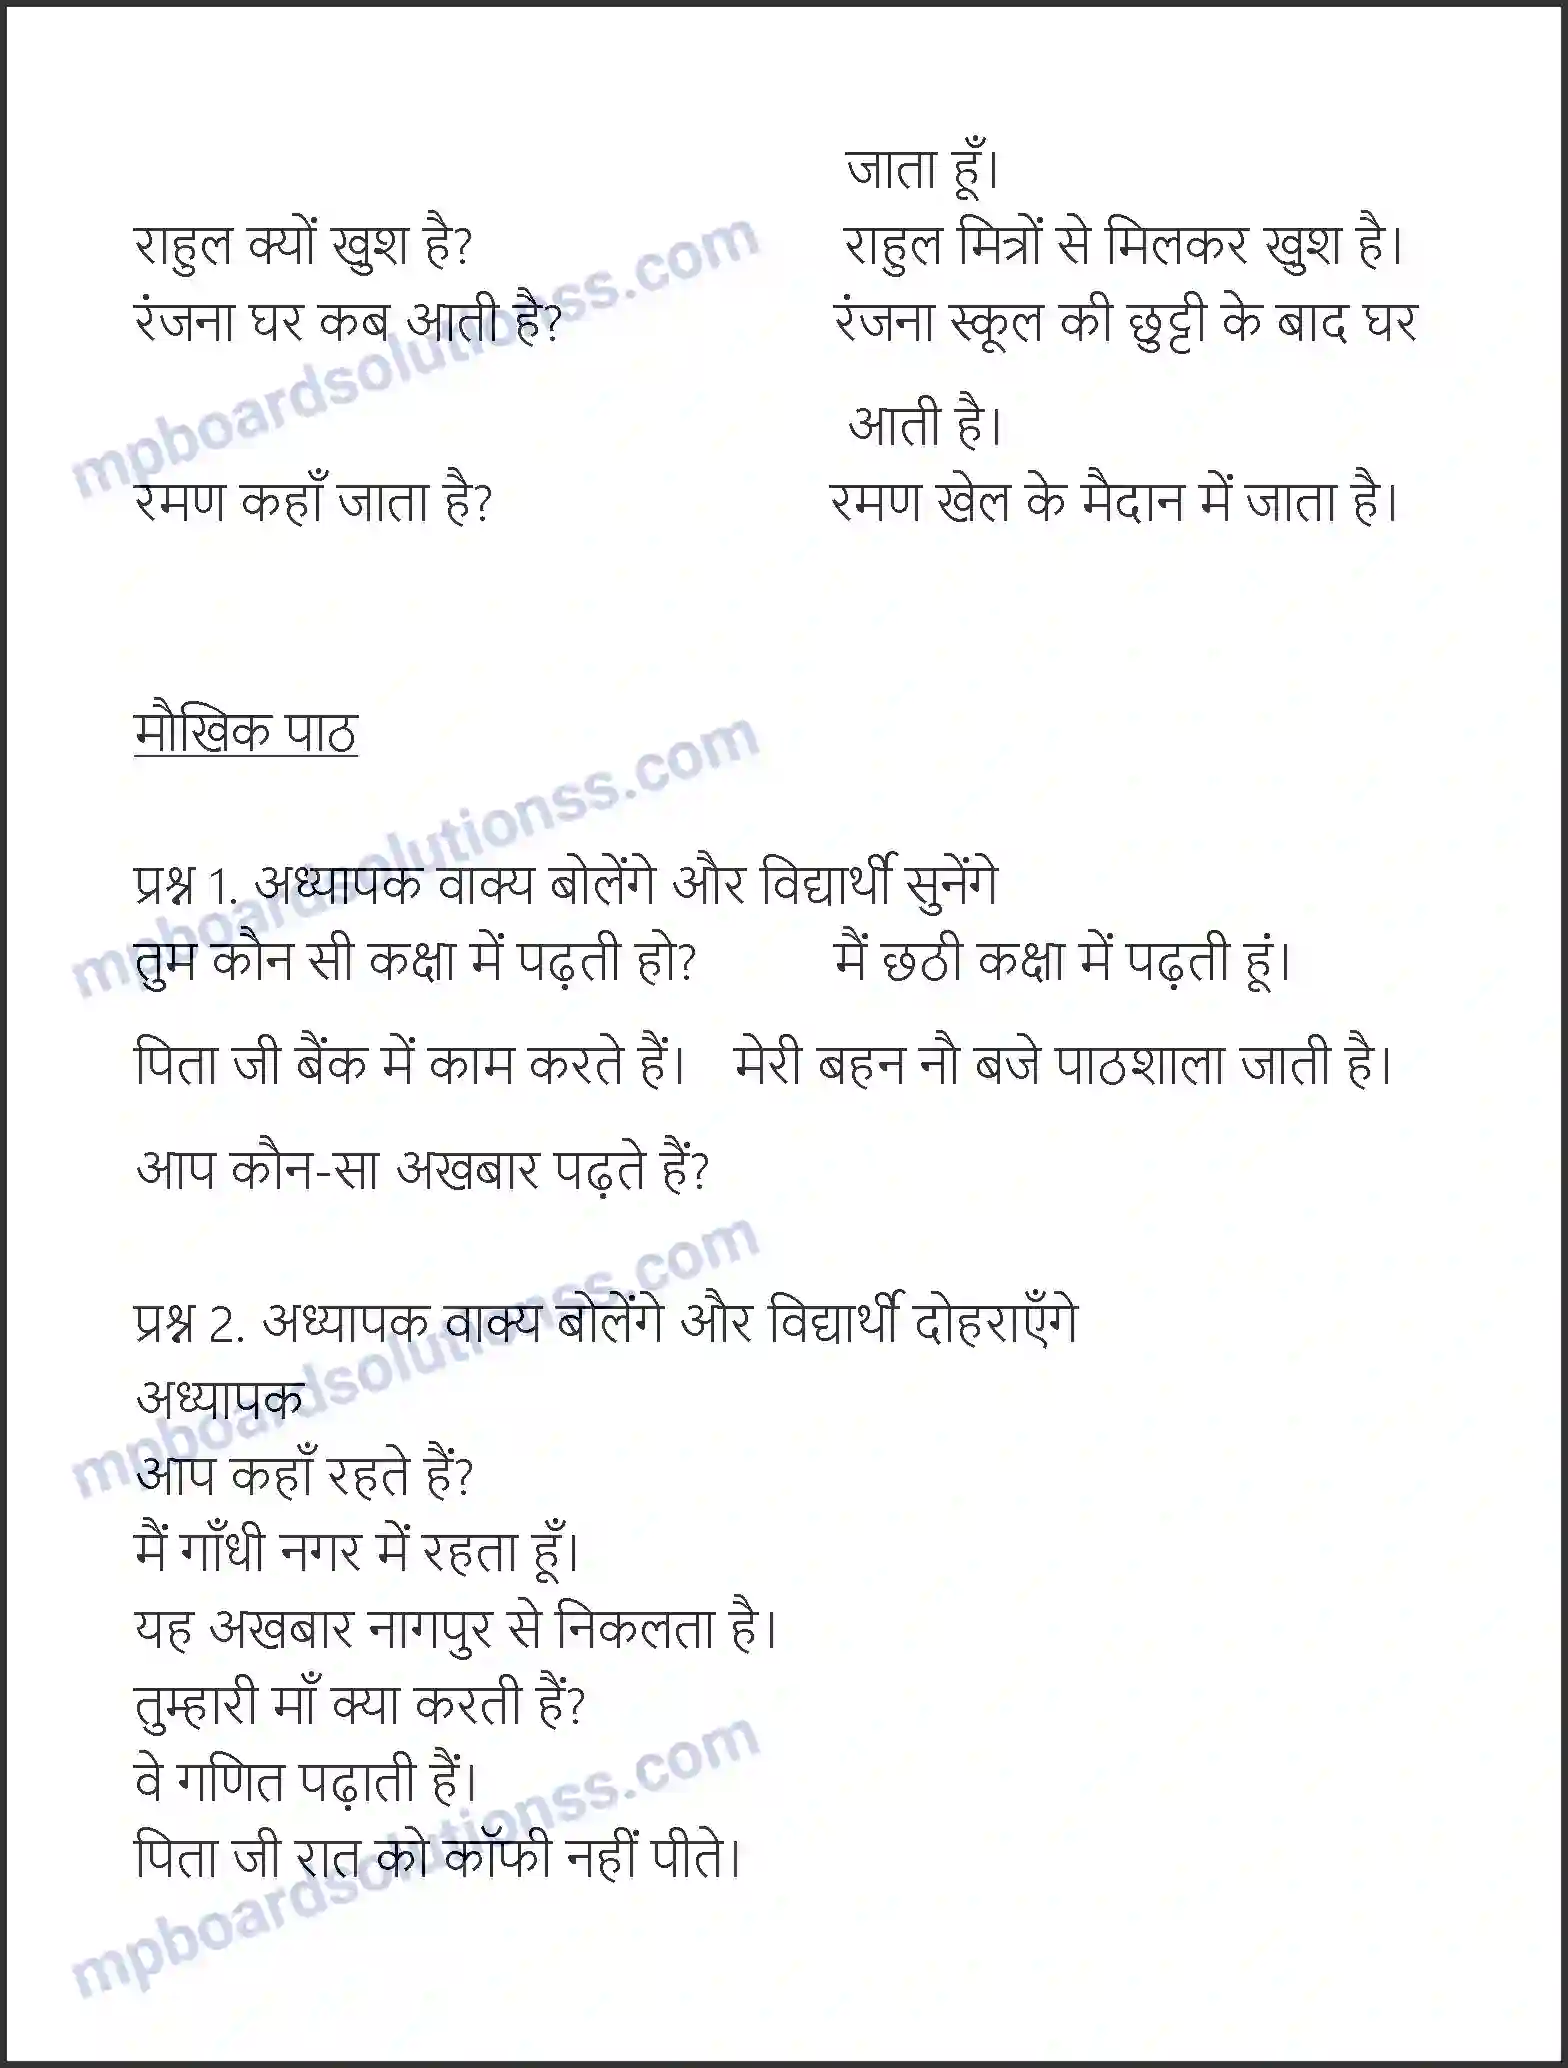 जाता हूँ।
राहुल क्यों खुश है? राहुल मित्रों से मिलकर खुश है।
रंजना घर कब आती है? रंजना स्कूल की छुट्टी के बाद घर
आती है।
रमण कहाँ जाता है? रमण खेल के मैदान में जाता है।
मौखिक पाठ
प्रश्न 1. अध्यापक वाक्य बोलेंगे और विद्यार्थी सुनेंगे
तुम कौन सी कक्षा में पढ़ती हो? मैं छठी कक्षा में पढ़ती हूं।
पिता जी बैंक में काम करते हैं। मेरी बहन नौ बजे पाठशाला जाती है।
आप कौन-सा अखबार पढ़ते हैं?
प्रश्न 2. अध्यापक वाक्य बोलेंगे और विद्यार्थी दोहराएँगे
अध्यापक
आप कहाँ रहते हैं?
मैं गाँधी नगर में रहता हूँ।
यह अखबार नागपुर से निकलता है।
तुम्हारी माँ क्या करती हैं?
वे गणित पढ़ाती हैं।
पिता जी रात को कॉफी नहीं पीते।
mpboardsolutionss.com
mpboardsolutionss.com
mpboardsolutionss.com
mpboardsolutionss.com